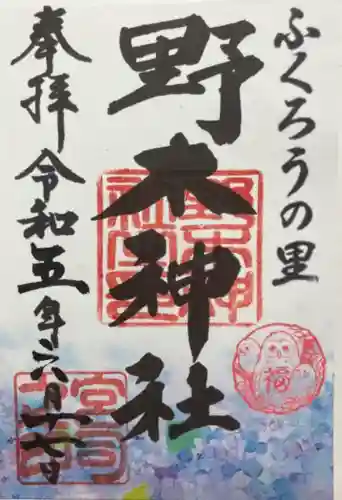 ふくろうの里
野木神社
奉拝
令和五年六月十七日
福